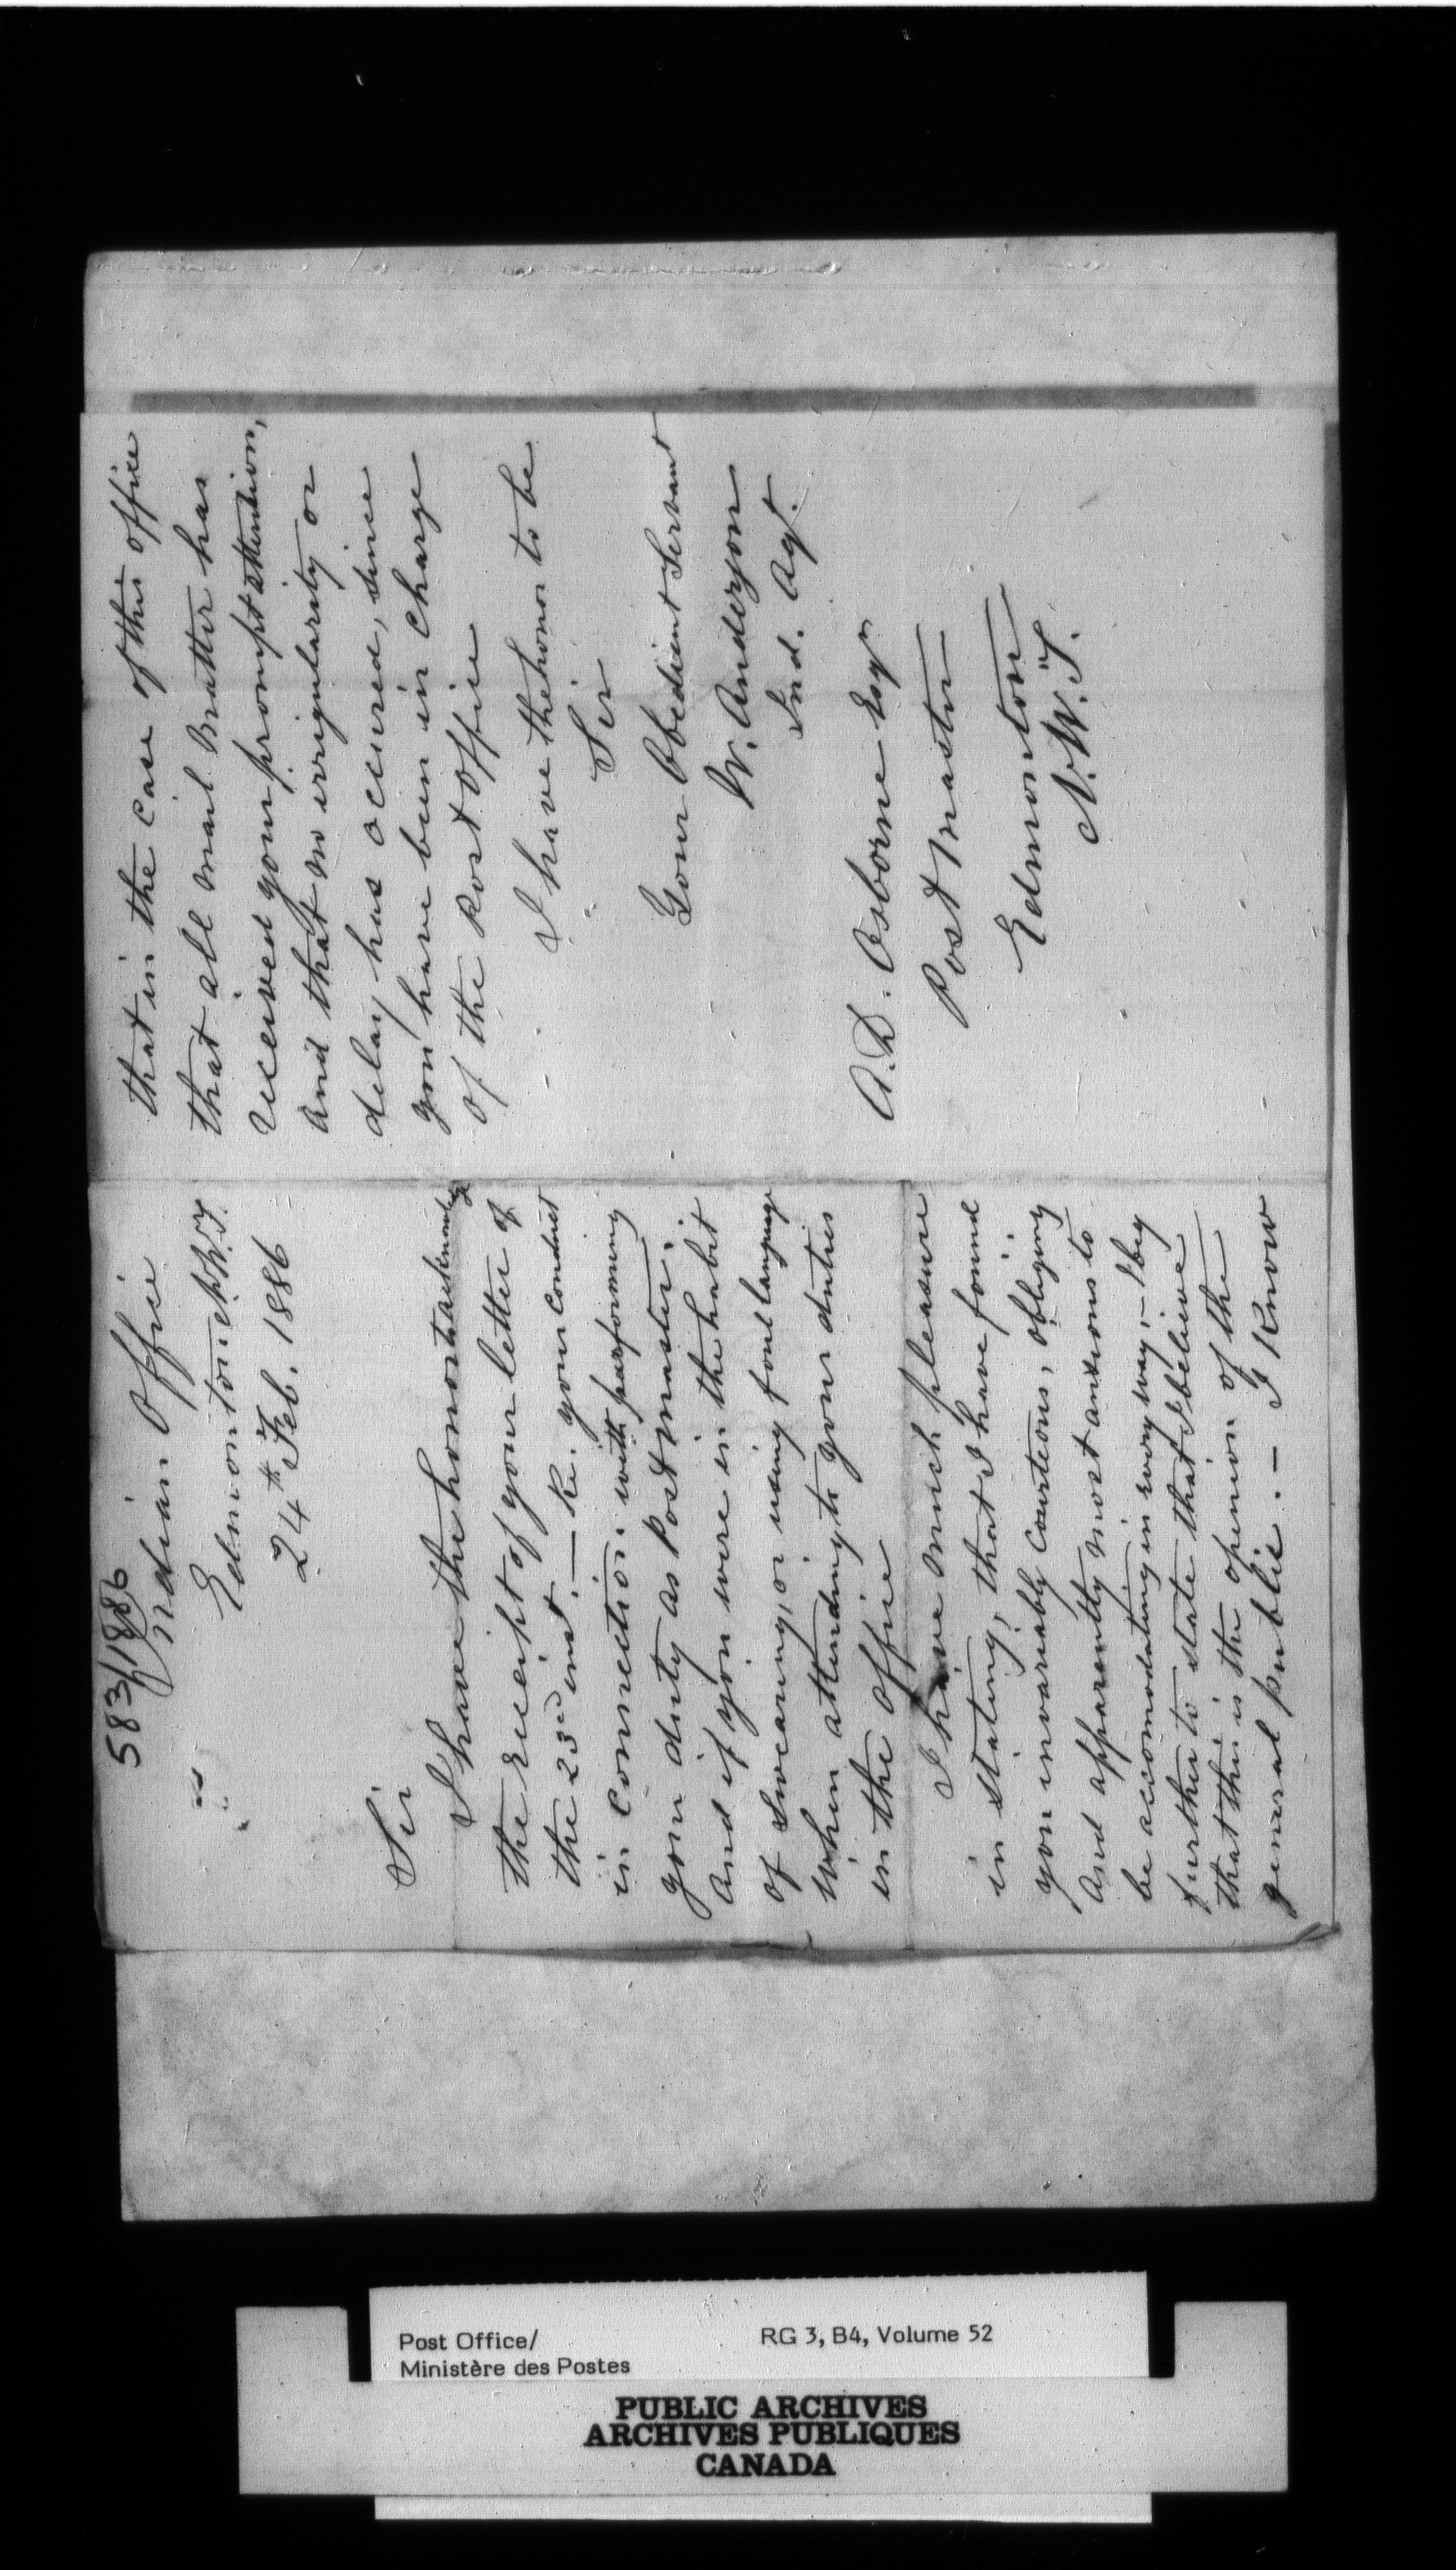 583/1886
Indian Office
Edmonton N.W.T.
24th Feb. 1886
Sir
I have the honor to acknowledge
the receipt of your letter of
the 23rd inst. — Re. your conduct
in connection with performing
your duty as Post Master.
And if you were in the habit
of swearing, or using foul language
when attending to your duties
in the office
I have much pleasure
in stating, that I have found
you invariably courteous, obliging
and apparently most anxious to
be accomodating in every way, — I beg
further to state that I believe
that this is the opinion of the
general public. — I know
that in the case of this office
that all mail matter has
received your prompt attention,
and that no irregularity or
delay has occured, since
you have been in charge
of the Post office
I have the honor to be
Sir
Your Obedient Servant
W. Anderson
Ind. Agt.
A. D. Osborne Esqr
Post Master
Edmonton
N.W.T.
Post Office/
Ministère des Postes
RG 3, B4, Volume 52
PUBLIC ARCHIVES
ARCHIVES PUBLIQUES
CANADA